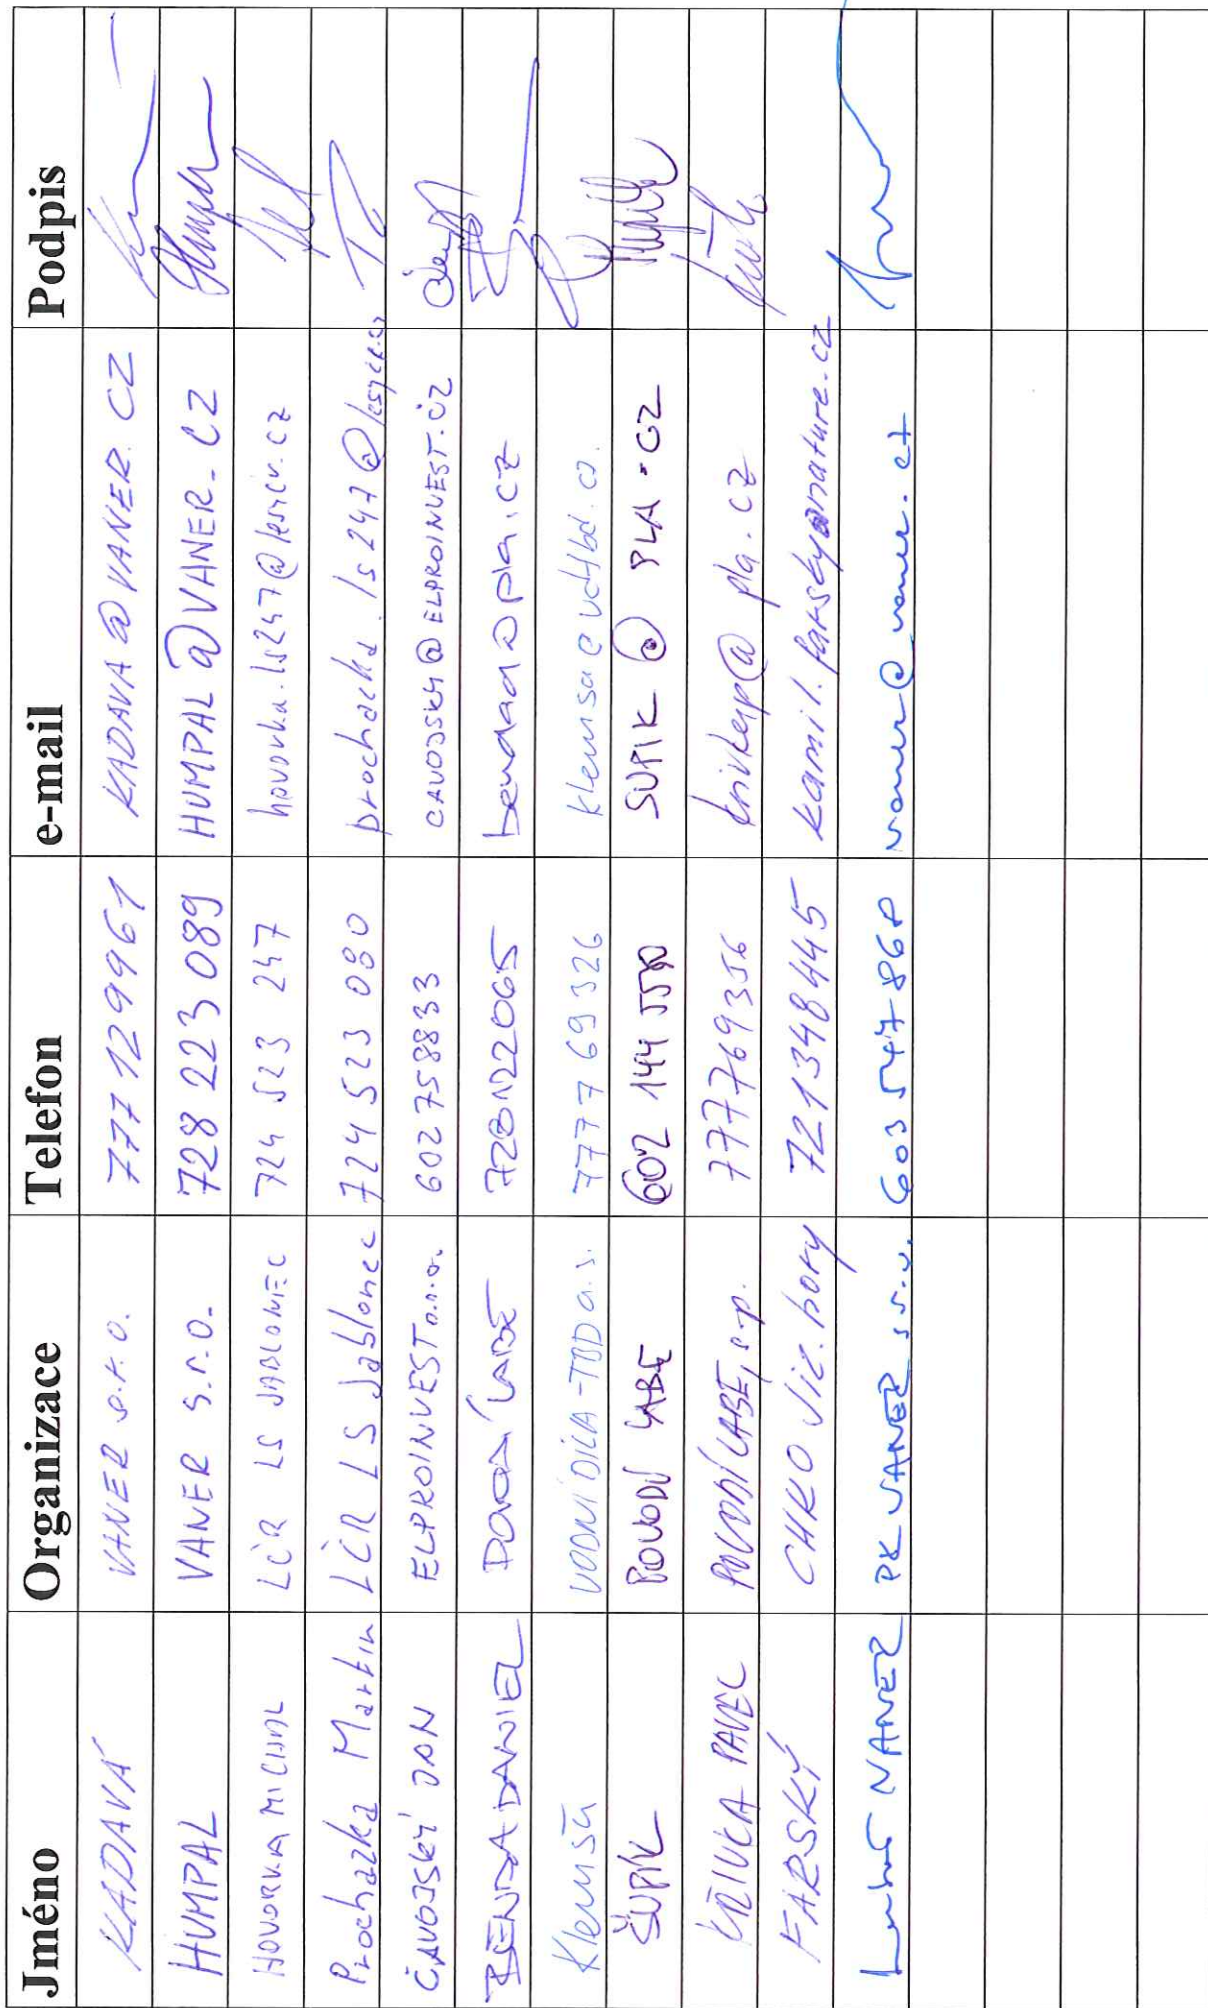 Jméno Organizace Telefon e-mail Podpis
KLADAVÁ VANER s.r.o. 777 129961 KADAVA@VANER.CZ
HUMPAL VANER s.r.o. 728 223 089 HUMPAL@VANER.CZ
HOVORKA MICHAL LČR LS JABLONEC 724 523 247 hovorka.ls247@lesycr.cz
Prochazka Martin LČR LS Jablonec 724 523 080 prochazka.ls247@lesycr.cz
ČAVOJSKÝ JAN ELPROINVEST s.r.o. 602758833 CAVOJSKY@ELPROINVEST.CZ
BENDA DANIEL POVODÍ LABE 728122065 bendad@pla.cz
Klemsa VODNÍ DÍLA-TBD a.s. 777769326 klemsa@vdtbd.cz
ŠUPÍK POVODÍ LABE 602 144 SUPIK@PLA.CZ
KŘIVKA PAVEL POVODÍ LABE, s.p. 777769356 krivkap@pla.cz
FARSKÝ CHKO Jiz. hory 721348445 kamil.farsky@nature.cz
Luboš VANER PK VANER s.r.o. 603 547 868 vaner@vaner.cz